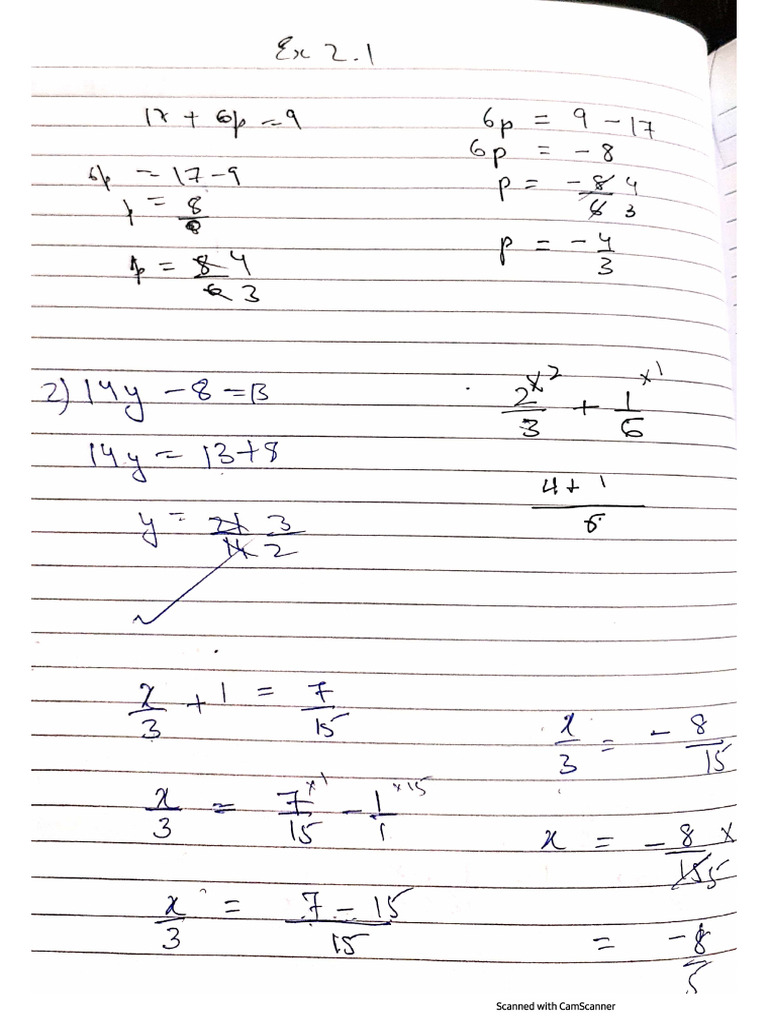 Ex 2.1
17 + 6p = 9
6p = 17 - 9
p = 8/6
p = 8/6 4/3
6p = 9 - 17
6p = - 8
p = - 8/6 4/3
p = - 4/3
2) 14y - 8 = 13
14y = 13 + 8
y = 21/14 3/2
2/3 ×2 + 1/6 ×1
4 + 1/6
x/3 + 1 = 7/15
x/3 = 7/15 ×1 - 1/1 ×15
x/3 = 7 - 15/15
x/3 = - 8/15
x = - 8/15 × 5
= -8/5
Scanned with CamScanner